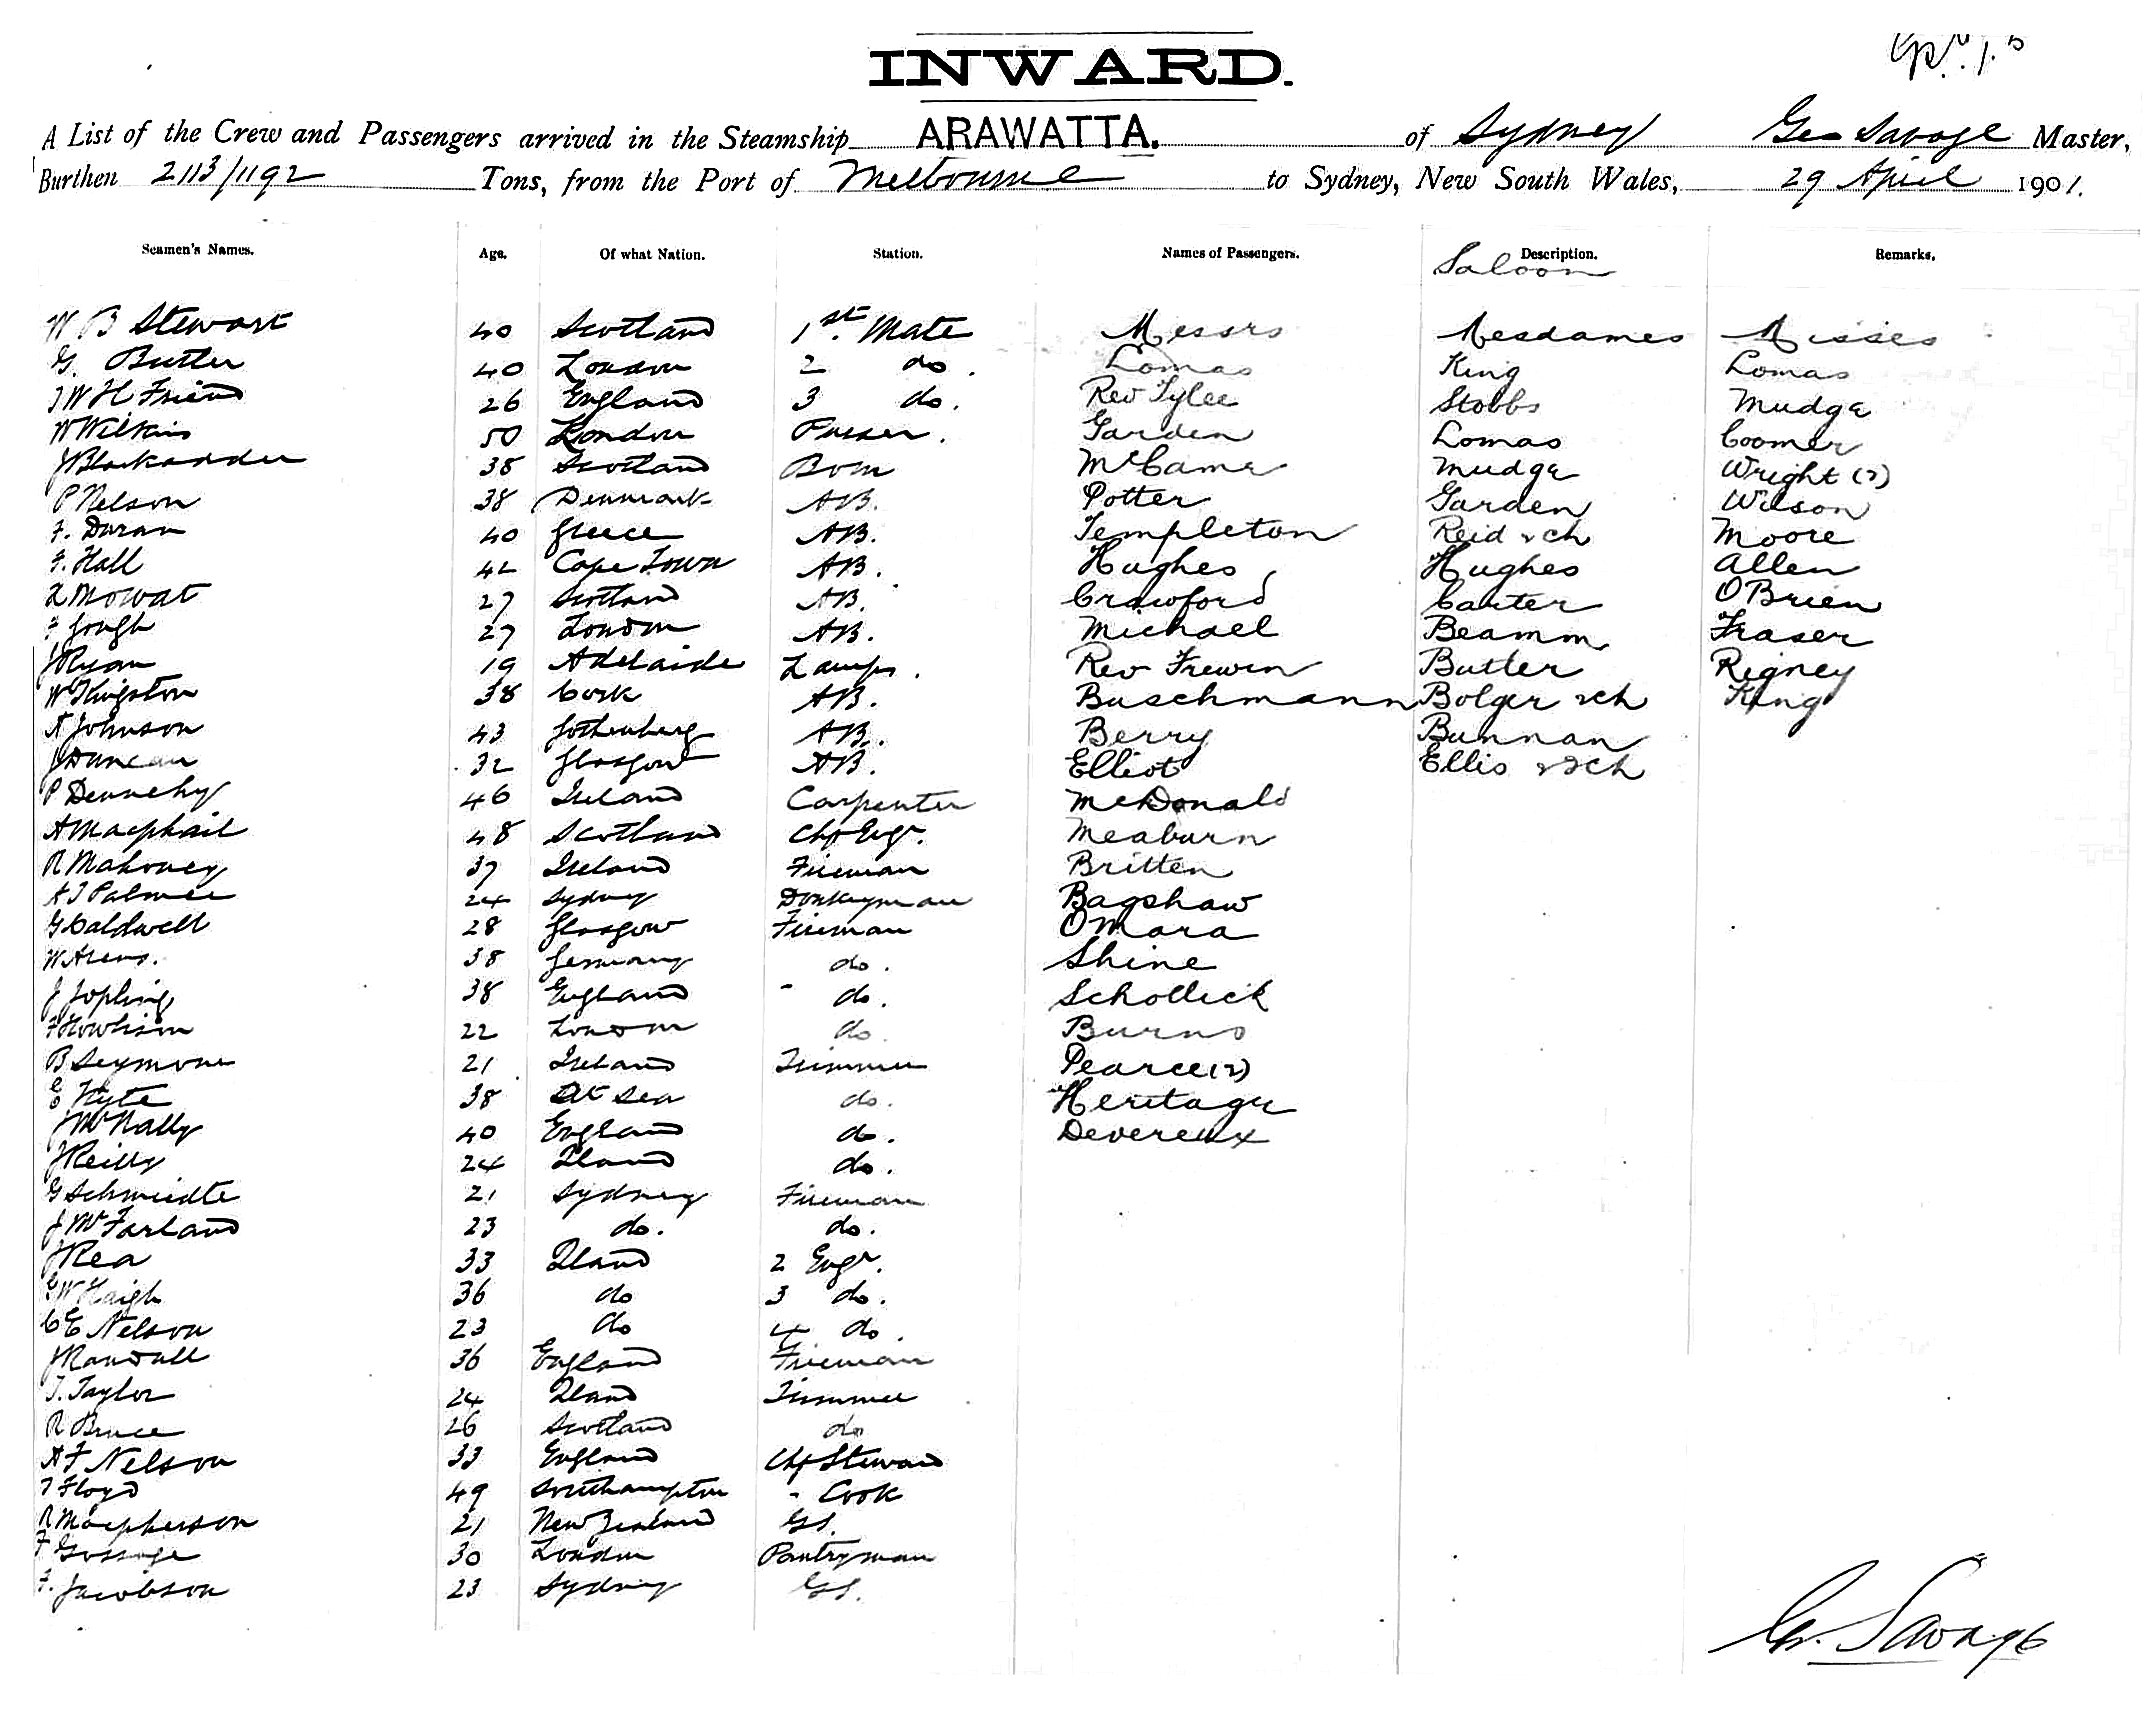 INWARD.
A List of the Crew and Passengers arrived in the Steamship ARAWATTA. of Sydney Geo Savage Master,
Burthen 2113/1192 Tons, from the Port of Melbourne to Sydney, New South Wales, 29 April 1901.
Seamen's Names. Age. Of what Nation. Station. Names of Passengers. Description. Remarks.
Saloon
W B Stewart 40 Scotland 1st. Mate Messrs Mesdames Misses
G. Butler 40 London 2 do. Lomas King Lomas
J W H Friend 26 England 3 do. Rev Tylee Stobbs Mudge
W Wilkin 50 London Purser. Garden Lomas Coomer
J Blackadder 38 Scotland Bosn McCame Mudge Wright (2)
P Nelson 38 Denmark AB. Potter Garden Wilson
F. Duran 40 Greece AB. Templeton Reid & ch Moore
F. Hall 42 Cape Town AB. Hughes Hughes Allen
Mowat 27 Scotland AB. Crawford Carter O'Brien
F Gough 27 London AB. Michael Beamm Fraser
J Ryan 19 Adelaide Lamps. Rev Frewin Butler Rigney
W Kingston 38 Cork AB. Buschmann Bolger & ch King
A Johnson 43 Gothenberg AB. Berry Bunnan
J Duncan 32 Glasgow AB. Elliot Ellis & 2 ch
P Dennehy 46 Ireland Carpenter McDonald
A Macphail 48 Scotland Chf Engr. Meaburn
R Mahoney 37 Ireland Fireman Britten
A J Palmer 24 Sydney Donkeyman Bagshaw
G Caldwell 28 Glasgow Fireman O'Mara
W Arens. 38 Germany do. Shine
J Jopling 38 England do. Schollick
F Howlison 22 London do. Burns
B Seymour 21 Ireland Trimmer Pearce (2)
E Hyte 38 At Sea do. Heritage
J McNally 40 England do. Devereux
J Reilly 24 Iland do.
G Schmidte 21 Sydney Fireman
J McFarland 23 do. do.
J Rea 33 Iland 2 Engr.
G W Haigh 36 do 3 do.
C E Nelson 23 do 4 do.
J Randall 36 England Fireman
T. Taylor 24 Iland Trimmer
R Bruce 26 Scotland do
A F Nelson 33 England Chf Steward
T Floyd 49 Southampton - Cook
R Macpherson 21 New Zealand GS.
F Gossage 30 London Pantryman
F. Jacobson 23 Sydney GS.
Geo. Savage